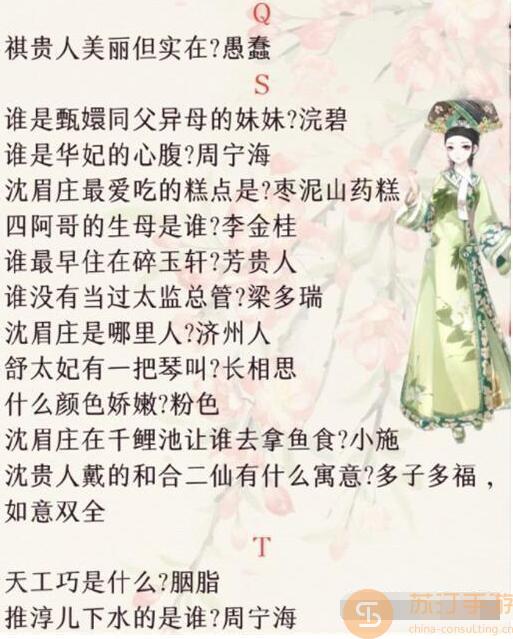 Q
祺贵人美丽但实在?愚蠢
S
谁是甄嬛同父异母的妹妹?浣碧
谁是华妃的心腹?周宁海
沈眉庄最爱吃的糕点是?枣泥山药糕
四阿哥的生母是谁?李金桂
谁最早住在碎玉轩?芳贵人
谁没有当过太监总管?梁多瑞
沈眉庄是哪里人?济州人
舒太妃有一把琴叫?长相思
什么颜色娇嫩?粉色
沈眉庄在千鲤池让谁去拿鱼食?小施
沈贵人戴的和合二仙有什么寓意?多子多福，
如意双全
T
天工巧是什么?胭脂
推淳儿下水的是谁?周宁海
苏汀手游
china-consulting.cn